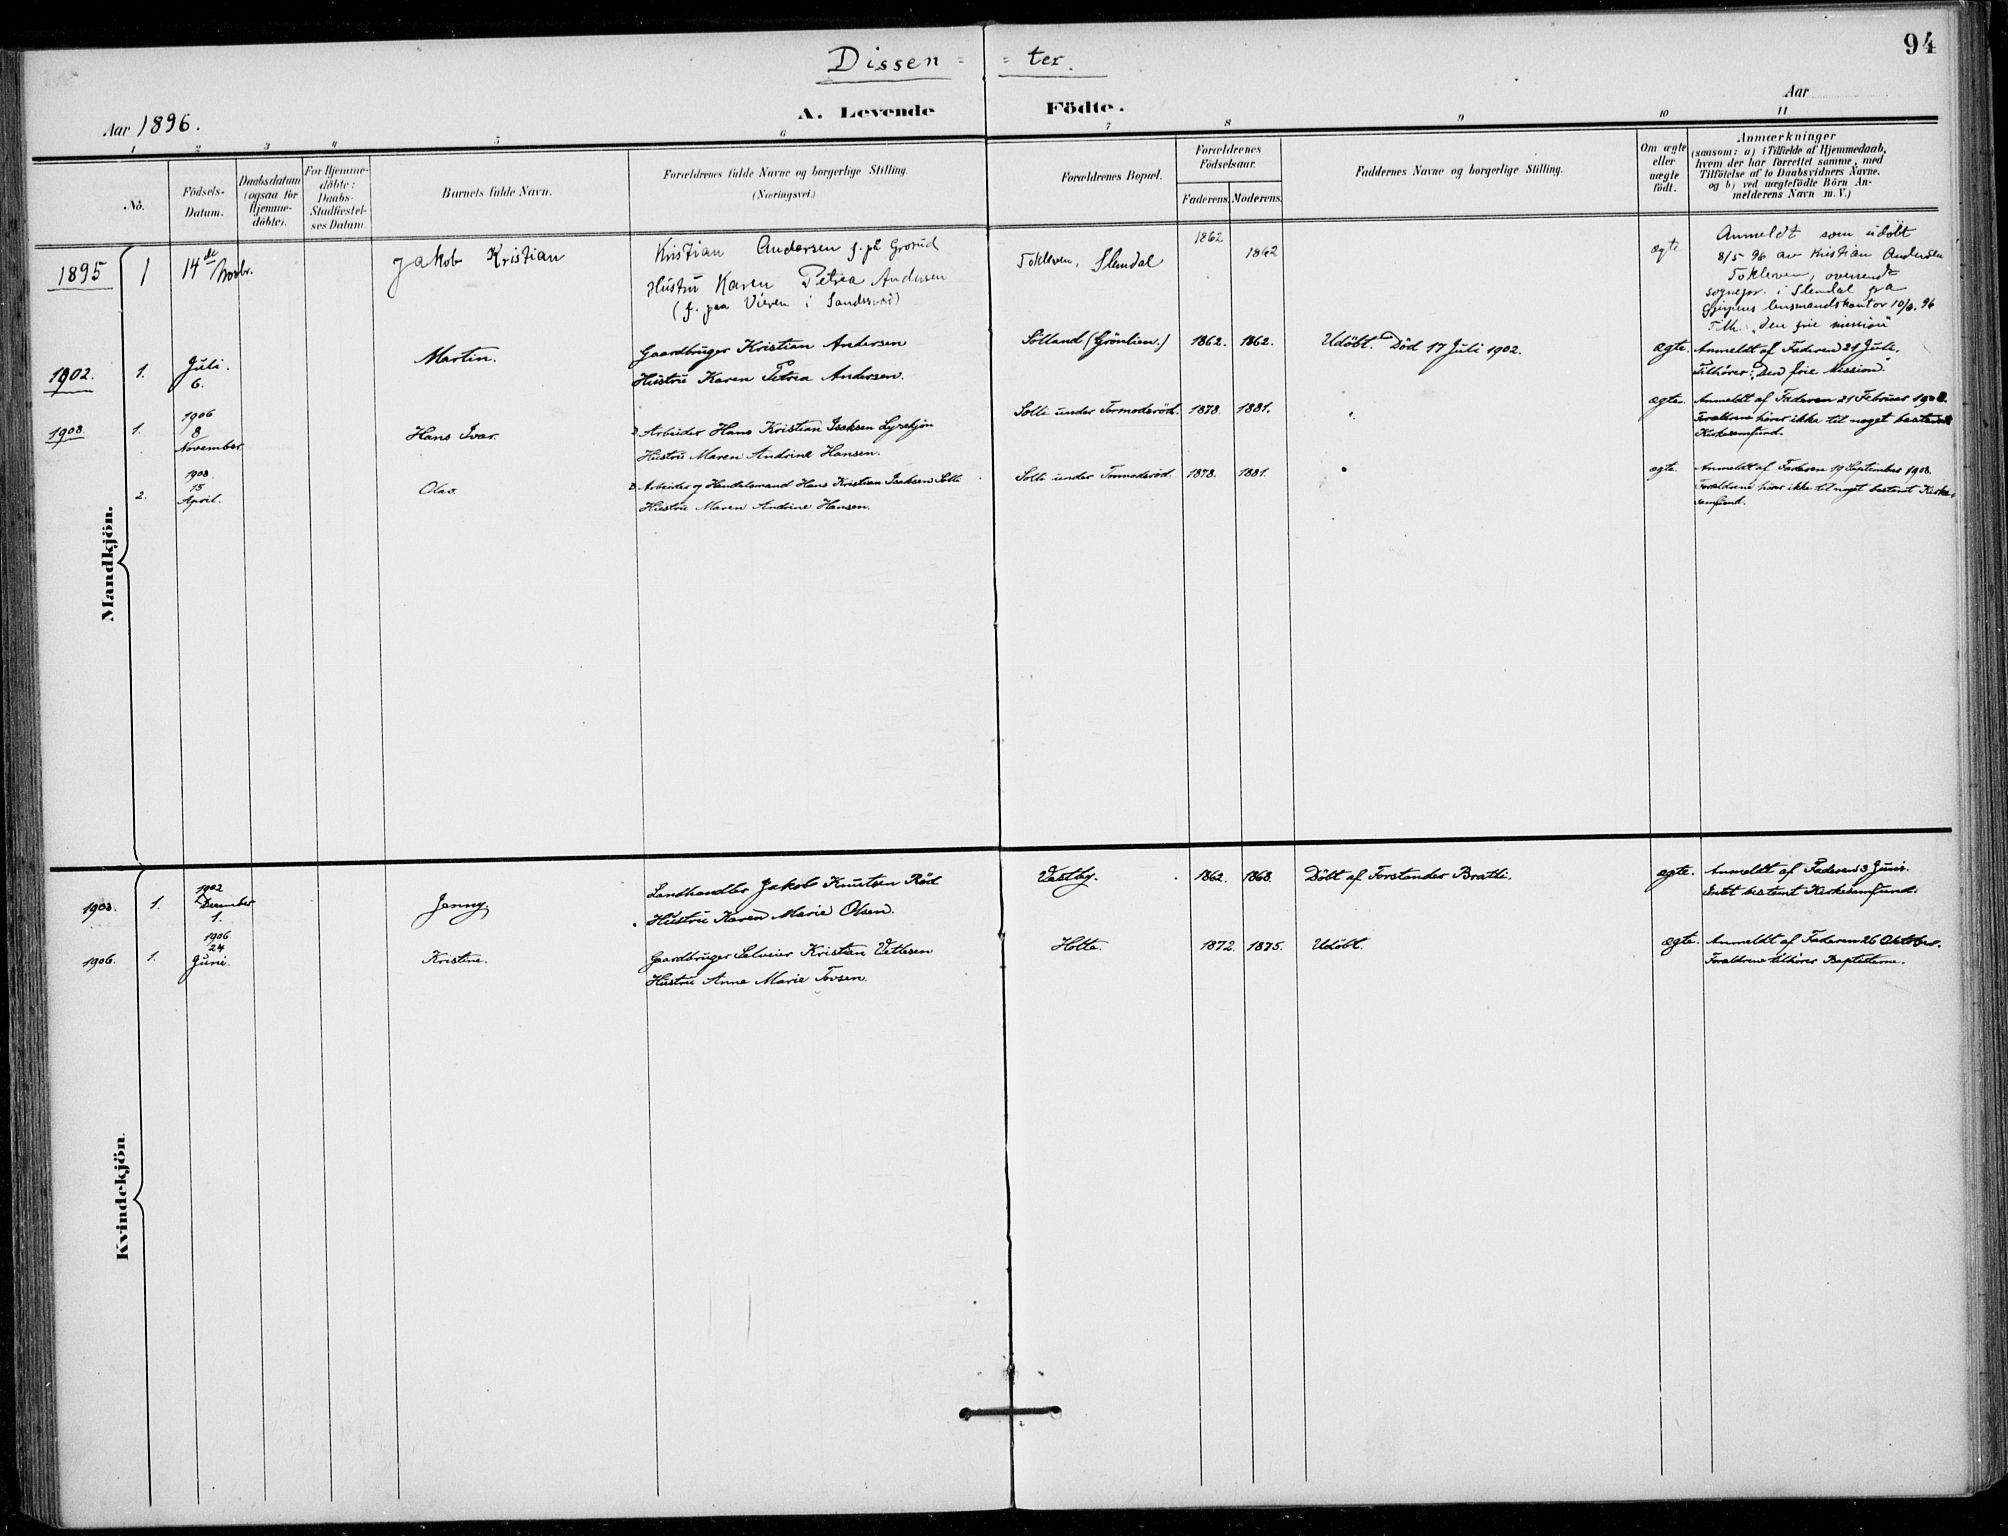 94
Dissen = = ter.
A. Levende Födte.
Aar 1896.
Aar
1 2 3 4 5 6 7 8 9 10 11
No.
Födsels-Datum.
Daabsdatum (ogsaa for Hjemme-döbte).
For Hjemme-döbte: Daabs-Stadfæstel-ses Datum
Barnets fulde Navn.
Forældrenes fulde Navne og borgerlige Stilling.
(Næringsvei.)
Forældrenes Bopæl.
Forældrenes Födselsaar.
Faderens. Moderens.
Faddernes Navne og borgerlige Stilling.
Om ægte eller uægte födt.
Anmærkninger
(saasom: a) i Tilfælde af Hjemmedaab,
hvem der har forrettet samme, med
Tilföielse af to Daabsvidners Navne.
og b) ved uægtefödte Börn An-
melderens Navn m. V.)
Mandkjön.
1895 1 14de Novbr. Jakob Kristian
Kristian Andersen f. på Grorud
Hustru Karen Petrea Andersen
(f. paa Vieren i Sandsvær)
Tokleven, Slemdal 1862 1862 ægte
Anmeldt som udöbt
8/5 96 av Kristian Andersen
Tokleven, oversendt
sognepr. i Slemdal fra
lensmandskontor 10/6. 96
Tilh. "den frie mission"
1902. 1. Juli 6. Martin.
Gaardbruger Kristian Andersen
Hustru Karen Petrea Andersen.
Solland (Grönlien.) 1862. 1862. Udöbt. Död 17 Juli 1902. ægte.
Anmeldt af Faderen 21 Juli.
Tilhører: "Den frie Mission."
1908. 1. 1906 8 November Hans Ivar.
Arbeider Hans Kristian Isaksen
Hustru Maren Andrine Hansen.
Solli under Tormodsröd. 1878. 1881. ægte.
Anmeldt af Faderen 21 Februar 1908.
Forældrene hører ikke til noget bestemt
Kirkesamfund.
2. 1908. 15 April. Olav.
Arbeider og Handelsmand Hans Kristian Isaksen Solli
Hustru Maren Andrine Hansen.
Solli under Tormodsröd. 1878. 1881. ægte.
Anmeldt af Faderen 19 September 1908.
Forældrene hører ikke til noget bestemt Kirke-
samfund.
Kvindekjön.
1903. 1. 1902 December 1. Jenny.
Landhandler Jakob Knutsen Röd
Hustru Karen Marie Olsen.
Vestby. 1862. 1868. Döbt af Forstander Bratli. ægte.
Anmeldt af Faderen 3 Juni.
Intet bestemt Kirkesamfund.
1906. 1. 1906 24 Juni. Kristine.
Gaardbruger Selveier Kristian Vetlesen
Hustru Anne Marie Tovsen.
Holte. 1872. 1875. Udöbt. ægte.
Anmeldt af Faderen 26 Oktober.
Forældrene tilhører Baptisterne.